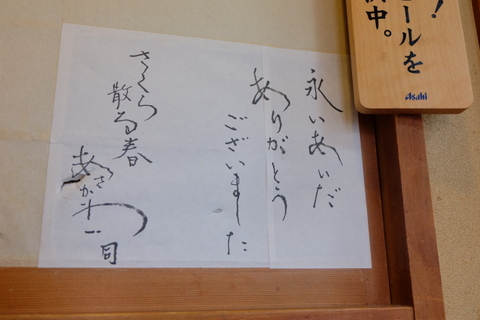 ！
ールを
中。
Asahi
永いあいだ
ありがとう
ございました
さくら
散る春
一同